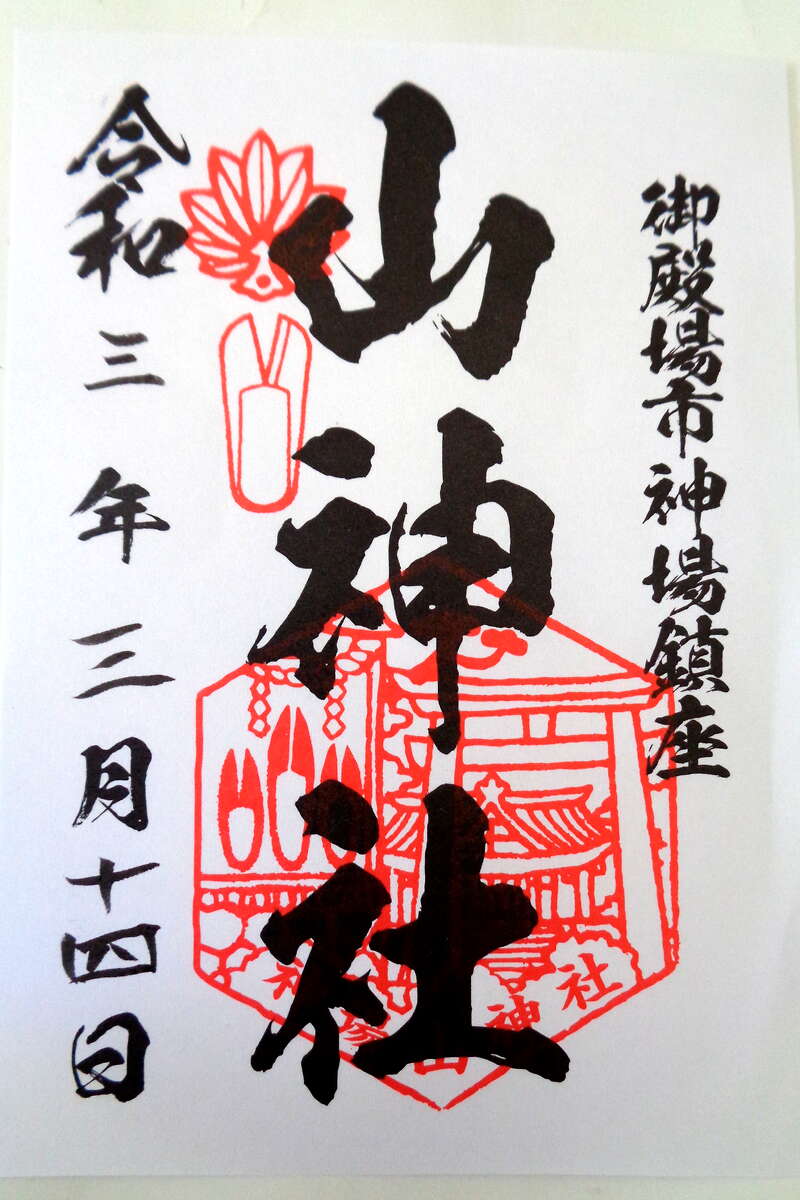 御殿場市神場鎮座
山神社
令和三年三月十四日
山神社